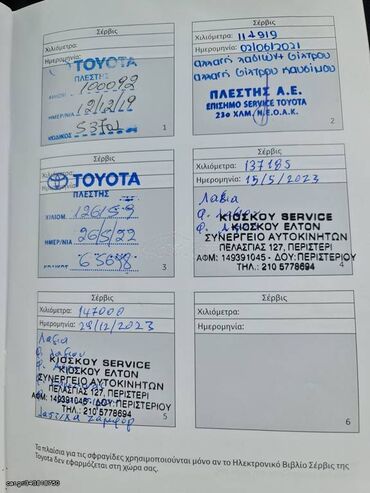 Σέρβις
Χιλιόμετρα:
Ημερομηνία:
TOYOTA
ΠΛΕΣΤΗΣ
100092
ΗΜΕΡ/ΝΙΑ 12/12/19
ΚΩΔΙΚΟΣ 5370
1
Σέρβις
Χιλιόμετρα: 117919
Ημερομηνία: 02/06/2021
αλλαγή λαδιών φίλτρου
αλλαγή φίλτρου καυσίμου
ΠΛΕΣΤΗΣ Α.Ε.
ΕΠΙΣΗΜΟ SERVICE TOYOTA
23ο ΧΛΜ. Ν.Ε.Ο.Α.Κ.
2
Σέρβις
Χιλιόμετρα:
TOYOTA
ΠΛΕΣΤΗΣ
ΧΙΛΙΟΜ.
ΗΜΕΡ/ΝΙΑ 26/5/22
ΚΩΔΙΚΟΣ
3
Σέρβις
Χιλιόμετρα: 137185
Ημερομηνία: 15/5/2023
Λάδια
Φ.
ΚΙΟΣΚΟΥ SERVICE
ΚΙΟΣΚΟΥ ΕΛΤΟΝ
ΣΥΝΕΡΓΕΙΟ ΑΥΤΟΚΙΝΗΤΩΝ
ΠΕΛΑΣΓΙΑΣ 127, ΠΕΡΙΣΤΕΡΙ
ΑΦΜ: 149391045 - ΔΟΥ: ΠΕΡΙΣΤΕΡΙΟΥ
ΤΗΛ.: 210 5778694
4
Σέρβις
Χιλιόμετρα: 147000
Ημερομηνία: 29/12/2023
Λάδια
Φ. λαδιου
ΚΙΟΣΚΟΥ SERVICE
ΚΙΟΣΚΟΥ ΕΛΤΟΝ
ΣΥΝΕΡΓΕΙΟ ΑΥΤΟΚΙΝΗΤΩΝ
ΠΕΛΑΣΓΙΑΣ 127, ΠΕΡΙΣΤΕΡΙ
ΑΦΜ: 149391045 - ΔΟΥ: ΠΕΡΙΣΤΕΡΙΟΥ
ΤΗΛ.: 210 5778694
5
Σέρβις
Χιλιόμετρα:
Ημερομηνία:
6
Τα πλαίσια για τις σφραγίδες χρησιμοποιούνται μόνο αν το Ηλεκτρονικό Βιβλίο Σέρβις της
Toyota δεν εφαρμόζεται στη χώρα σας.